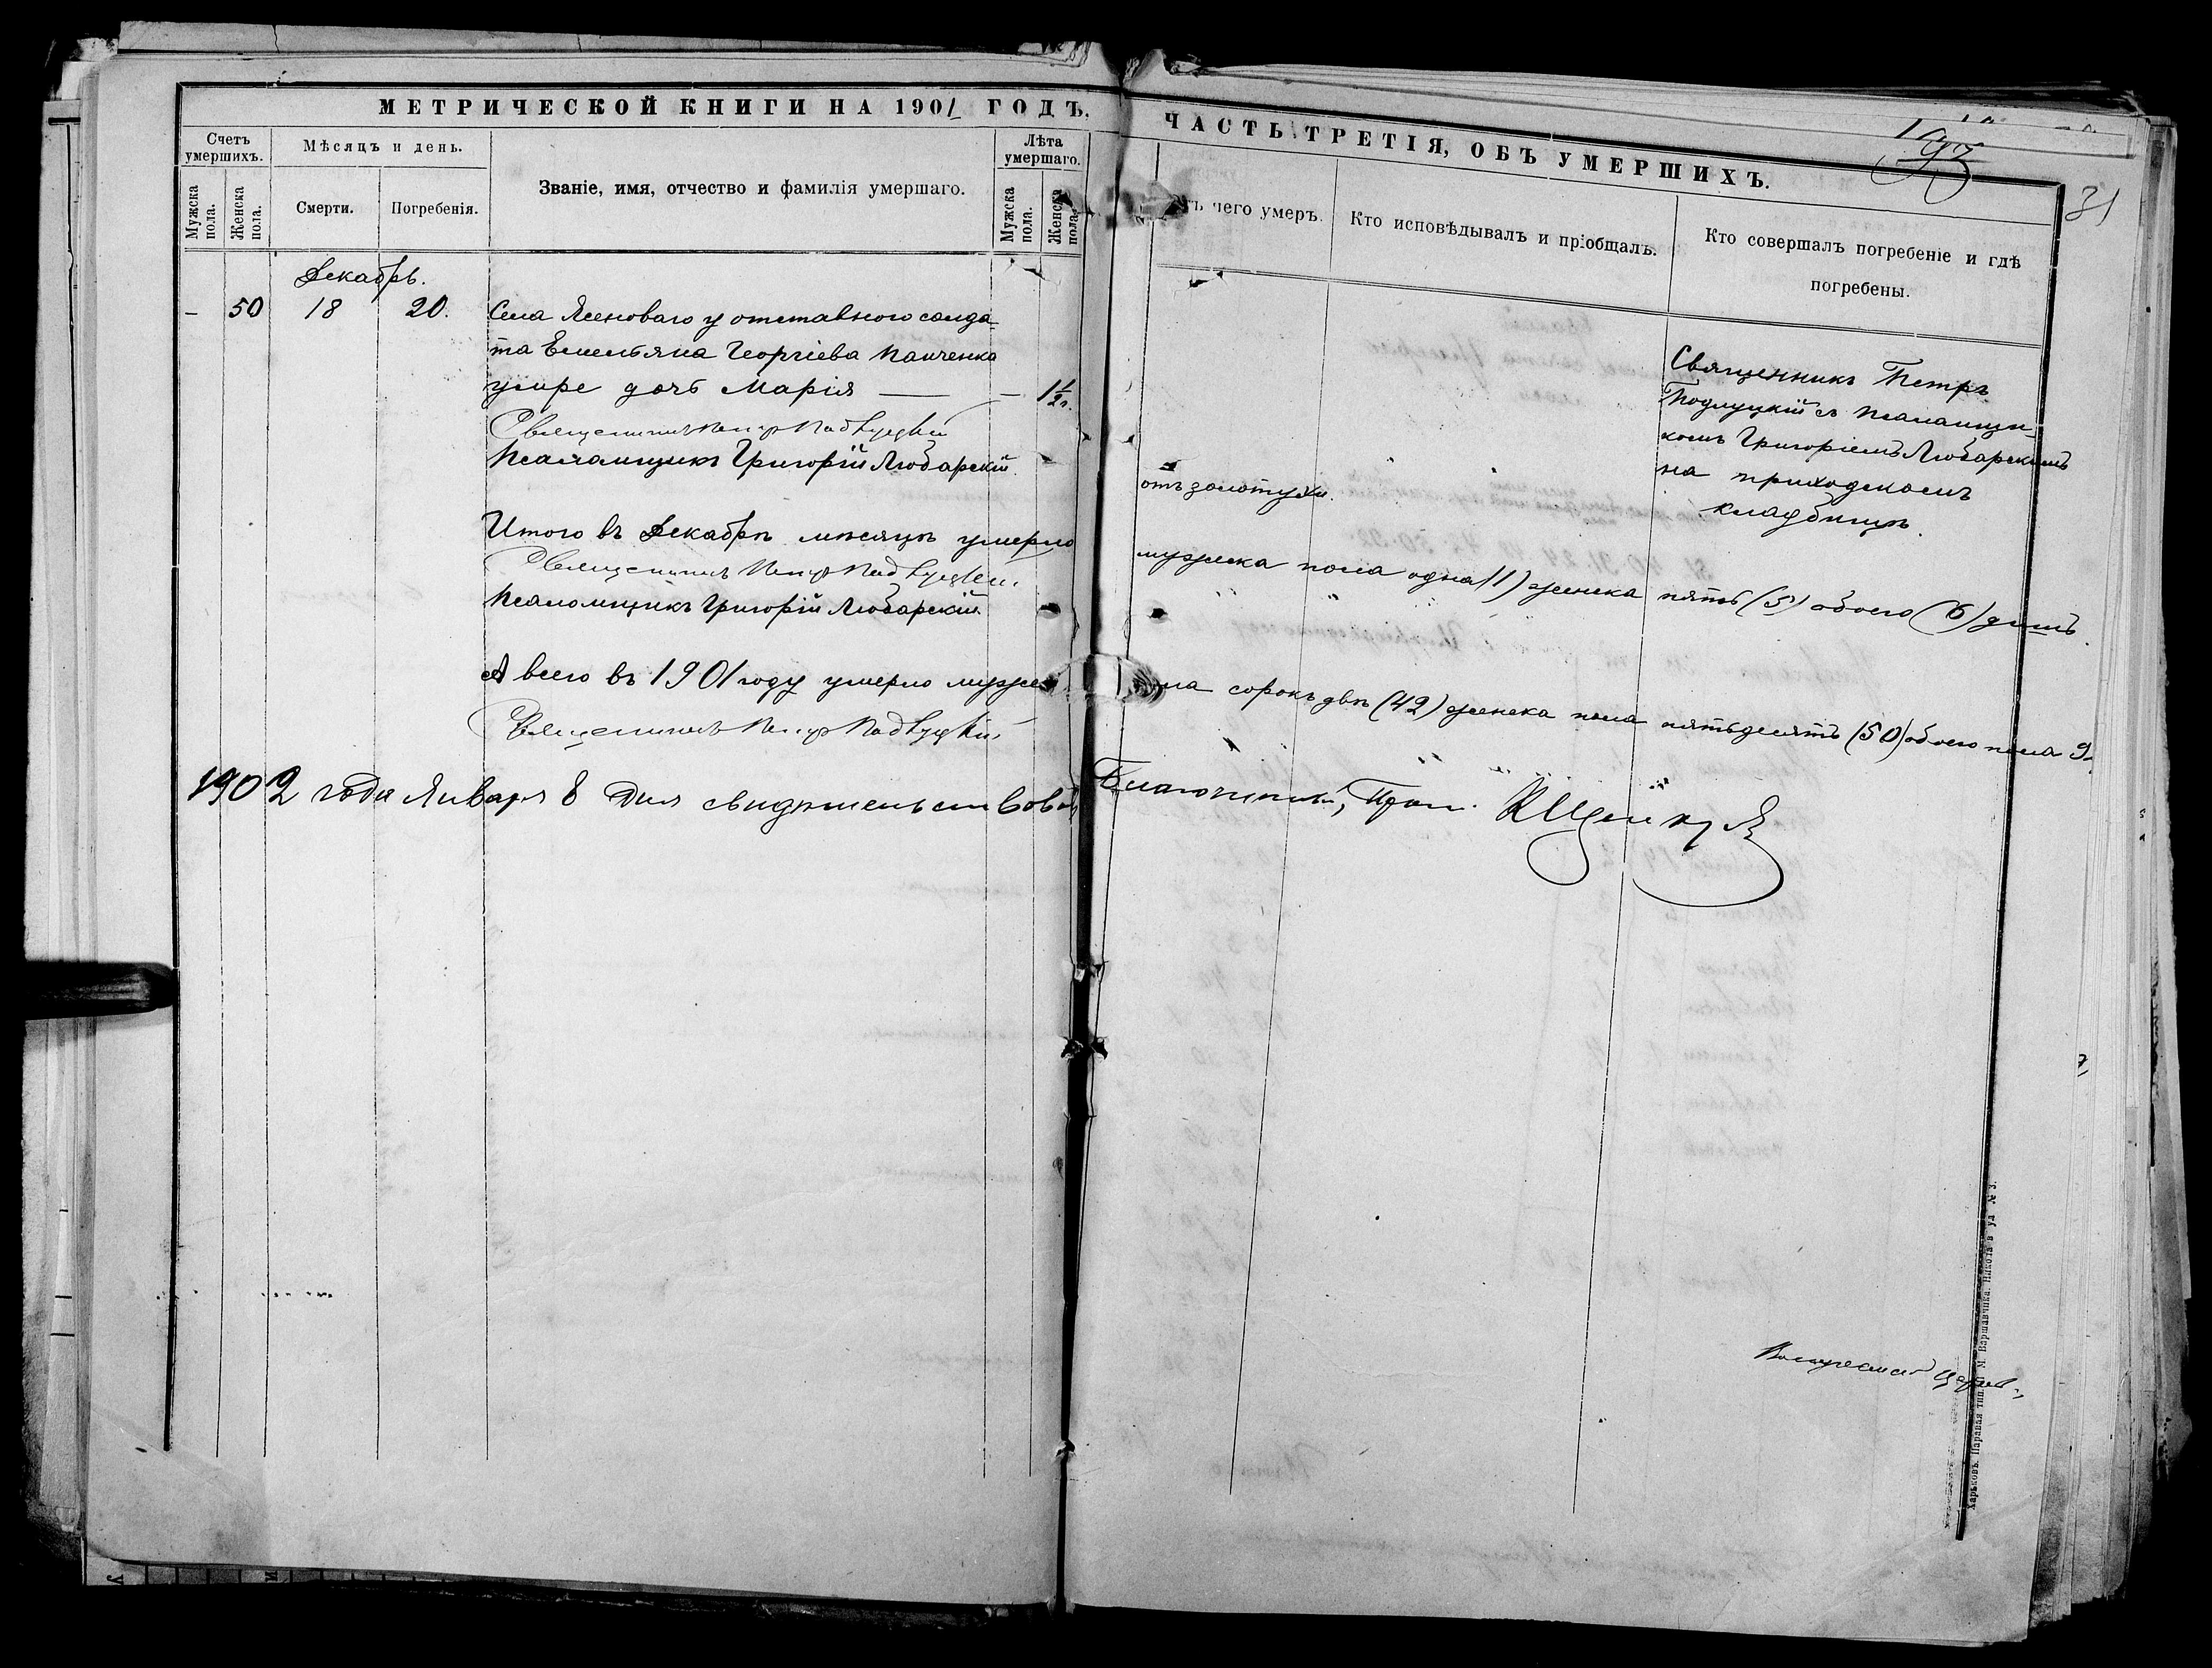 МЕТРИЧЕСКОЙ КНИГИ НА 1901 ГОДЪ,
Счетъ умершихъ.
Мужска пола.
Женска пола.
Мѣсяцъ и день.
Смерти.
Погребенія.
Званіе, имя, отчество и фамилія умершаго.
Лѣта умершаго.
Мужска пола.
Женска пола.
Декабрь.
– 50 18 20.
Села Ясеноваго у отставного солда-
та Емельяна Георгіева Панченка
умре дочь Марія — – 1½ г.
Священникъ Петръ Подлуцкій
Псаломщикъ Григорій Любарскій.
Итого въ Декабрѣ мѣсяцѣ умерло
Священникъ Петръ Подлуцкій.
Псаломщикъ Григорій Любарскій
А всего въ 1901 году умерло мужска
Священникъ Петръ Подлуцкій
1902 года Января 8 дня свидѣтельствовалъ
ЧАСТЬ ТРЕТІЯ, ОБЪ УМЕРШИХЪ.
193
31
чего умеръ.
Кто исповѣдывалъ и пріобщалъ.
Кто совершалъ погребеніе и гдѣ
погребены.
Священникъ Петръ
Подлуцкій съ псаломщи-
комъ Григоріемъ Любарскимъ
на приходскомъ
кладбищѣ.
отъ золотухи.
мужска пола одна (1) женска пять (5) обоего (6) душъ.
пола сорокъ двѣ (42) женска пола пятьдесятъ (50) обоего пола 9
Благочинный,
Харьковъ. Паровая тип. М. Варшавчика. Никола в ул № 3.